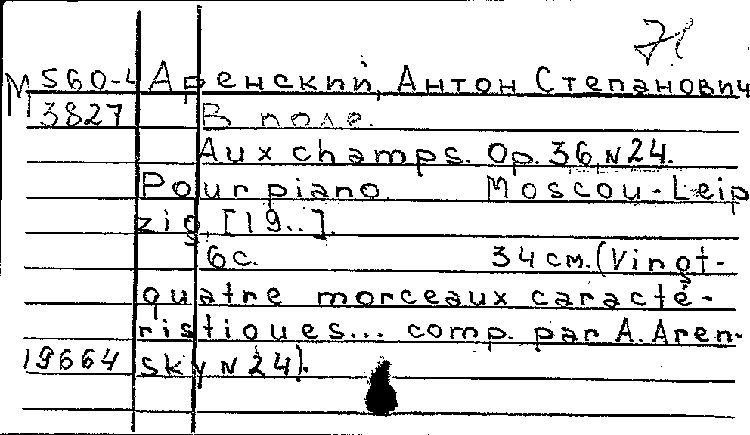 71
М 560-4 Аренский, Антон Степанович
3827 В поле.
Aux champs. Op. 36, N24.
Pour piano Moscou-Leip
zig, [19..].
6с. 34 см. (Vingt-
quatre morceaux caracté-
ristiques... comp. par A. Aren-
19664 sky N 24).